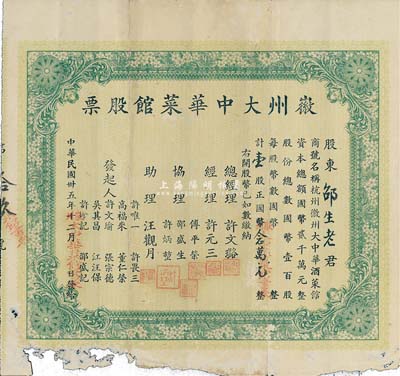 徽州大中華菜館股票
股東 邵生老 君
商號名稱杭州徽州大中華酒菜館
資本總額國幣貳千萬元整
股份總數國幣壹百股
每股股數國幣 整
計壹股正國幣 萬元整
右開股幣已如數繳納
總經理 許文谿
經理 許元三
傅平榮
協理 邵盛生
許炳堃
助理 汪觀月
發起人
許唯一 許長三
高福來 董仁榮
許文瑜 張宗德
吳其昌 江汪保
許妙記 邵盛記
中華民國卅五年十二月 日發給
上海陽明拍賣